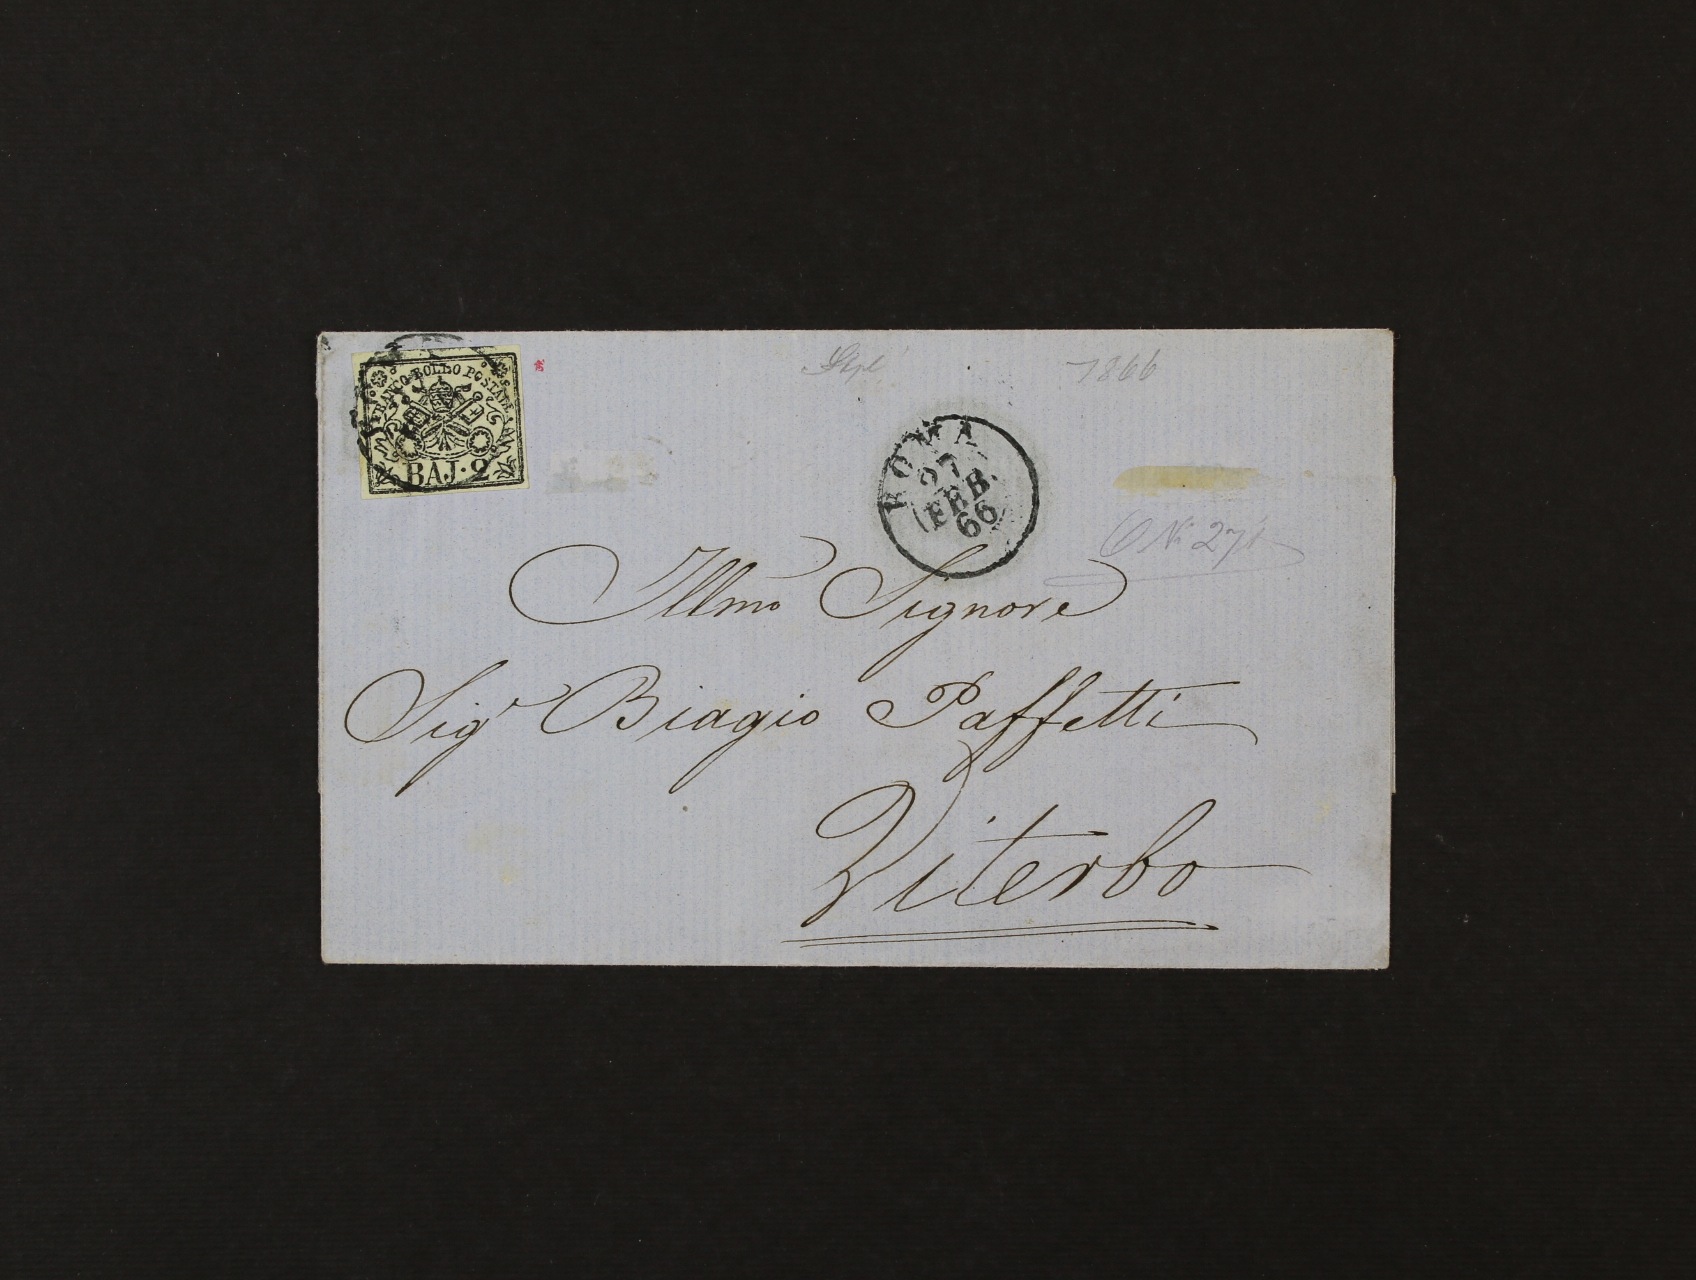 FRANCO BOLLO POSTALE
BAJ. 2
1866
ROMA
27
FEB.
66
Illmo Signore
Sigr Biagio Paffetti
Viterbo